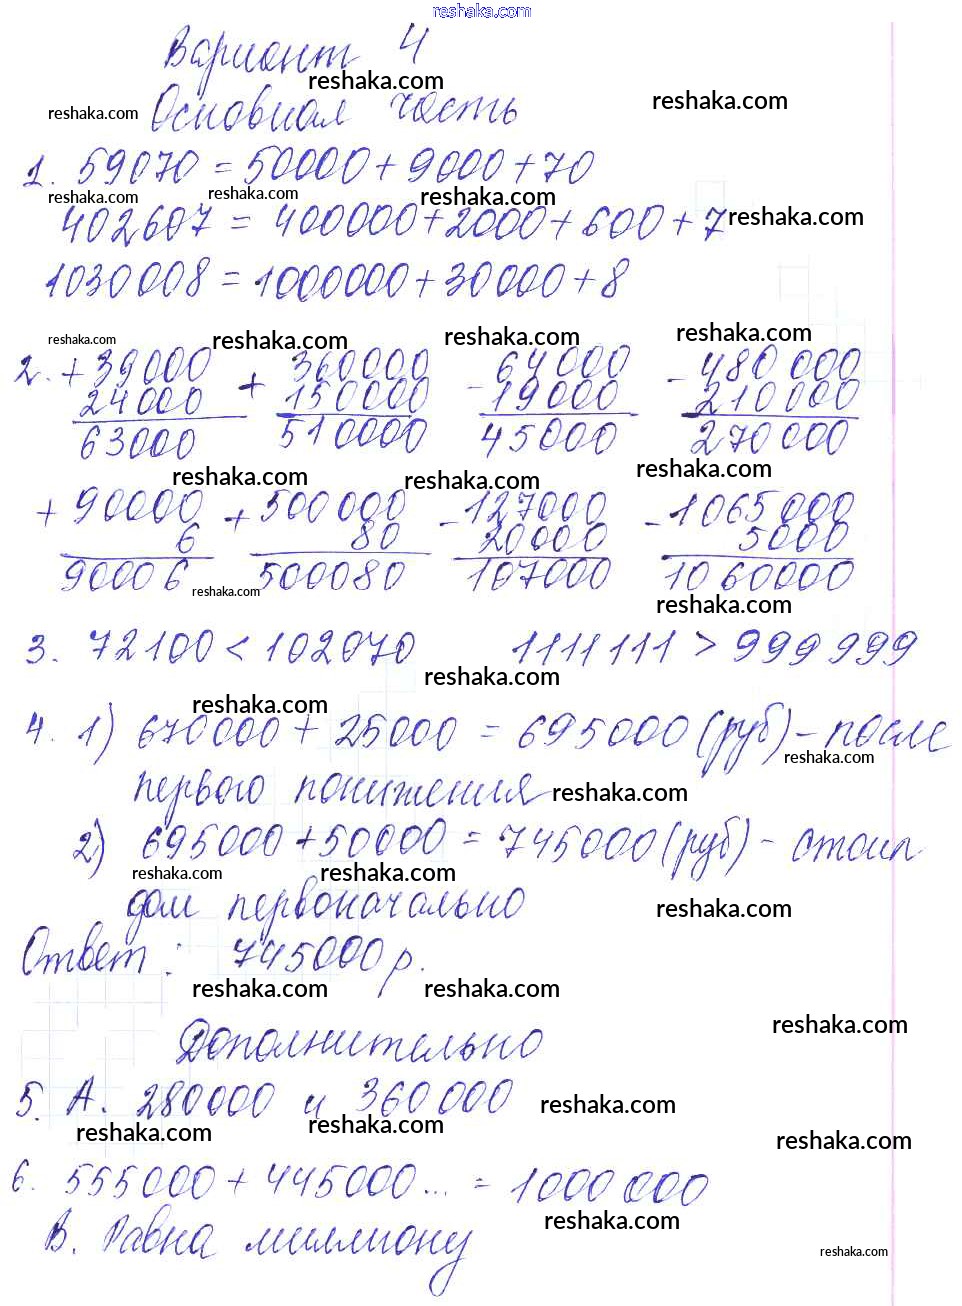 reshaka.com
Вариант 4
reshaka.com
reshaka.com
reshaka.com
Основная часть
1. 59070 = 50000 + 9000 + 70
reshaka.com reshaka.com reshaka.com
402607 = 400000 + 2000 + 600 + 7
reshaka.com
1030008 = 1000000 + 30000 + 8
reshaka.com reshaka.com reshaka.com reshaka.com
2. + 39000 + 360000 - 64000 - 480 000
24000 150000 19000 210000
63000 510000 45000 270 000
reshaka.com reshaka.com reshaka.com
+ 90000 + 500 000 - 127000 - 1065 000
6 80 20000 5000
90006 500080 107000 1060000
reshaka.com reshaka.com
3. 72100 < 102070 1111 111 > 999 999
reshaka.com
reshaka.com
4. 1) 670000 + 25000 = 695000 (руб) - после
reshaka.com
первого понижения
reshaka.com
2) 695000 + 50000 = 745000 (руб) - стоил
reshaka.com reshaka.com
дом первоначально
reshaka.com
Ответ: 745000 р.
reshaka.com reshaka.com
reshaka.com
Дополнительно
5. А. 280000 и 360 000
reshaka.com
reshaka.com reshaka.com reshaka.com
6. 555000 + 445000... = 1000 000
reshaka.com
В. Равна миллиону
reshaka.com